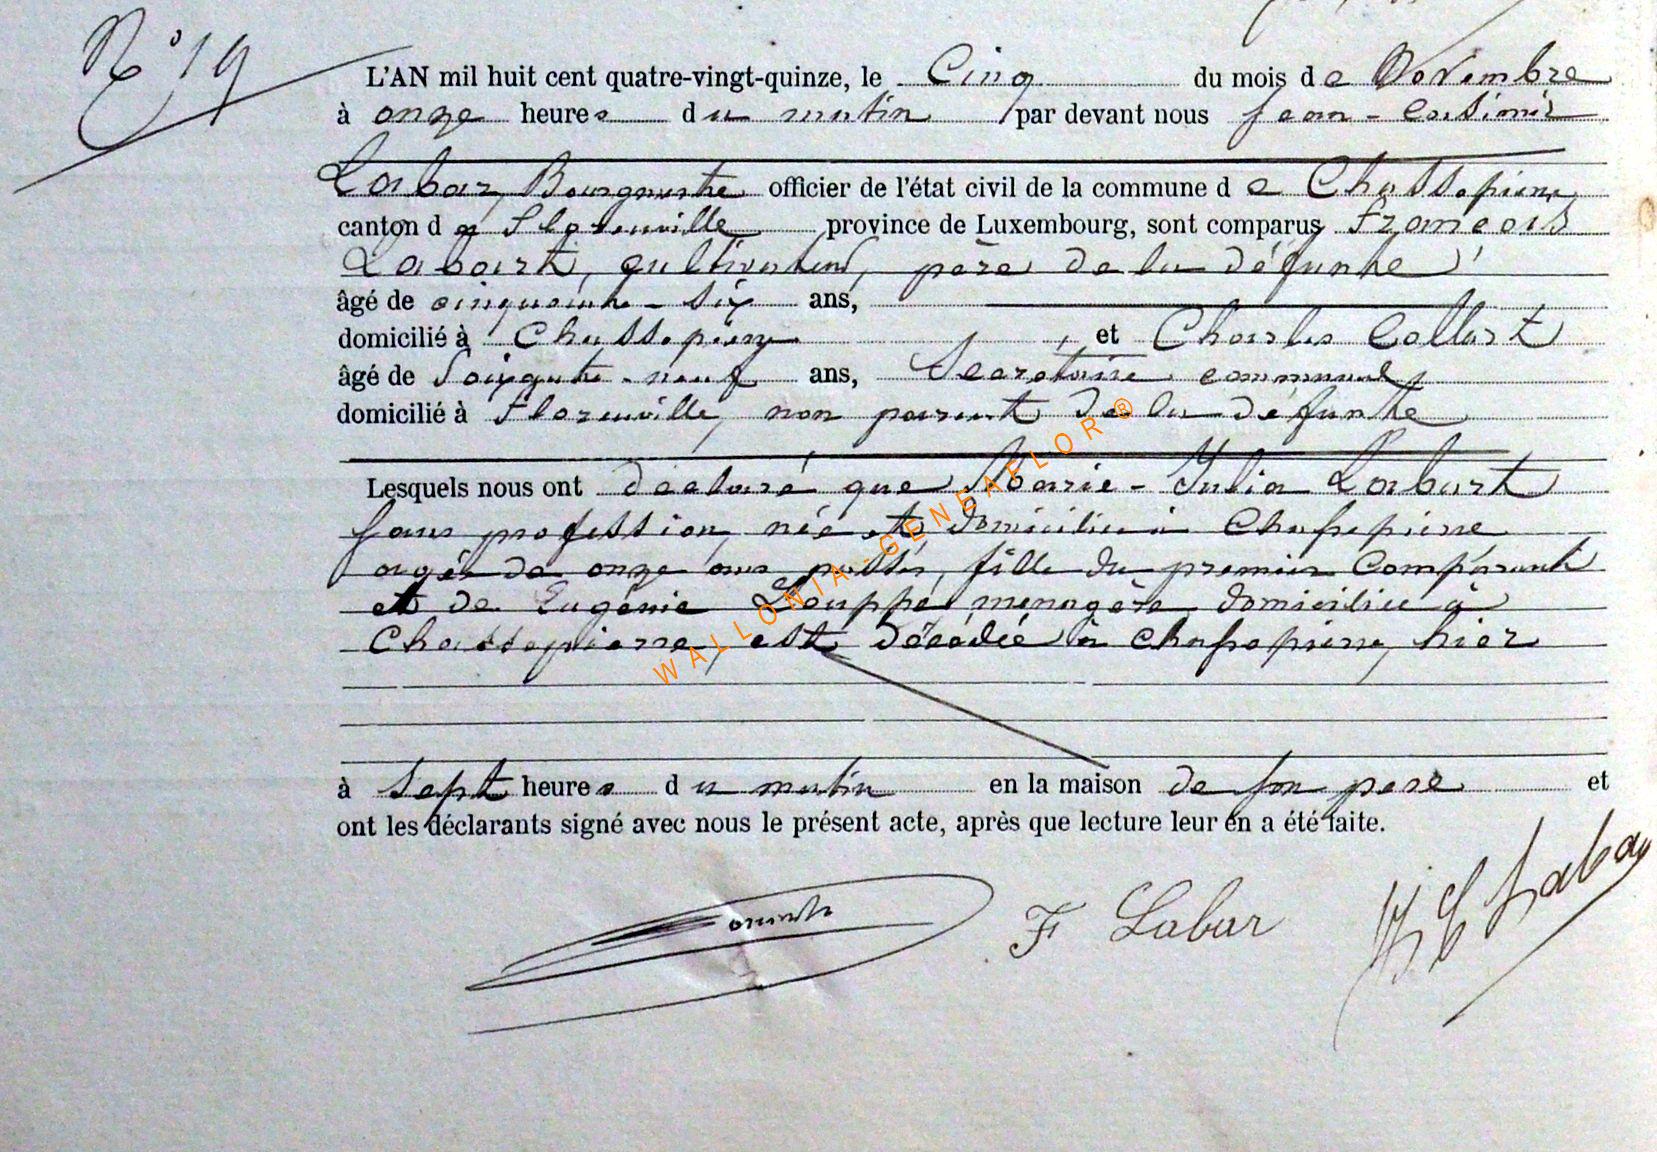 N° 19
L'AN mil huit cent quatre-vingt-quinze, le Cinq du mois de Novembre
à onze heures du matin par devant nous Jean-Casimir
Labar, Bourgmestre officier de l'état civil de la commune de Chassepierre
canton de Florenville province de Luxembourg, sont comparus François
Labart, cultivateur, père de la défunte
âgé de cinquante-six ans,
domicilié à Chassepierre, et Charles Collart
âgé de Soixante-neuf ans, Secretaire communal
domicilié à Florenville, non parent de la défunte
Lesquels nous ont déclaré que Marie-Julia Labart
sans profession, née et domiciliée à Chassepierre
agée de onze ans passés, fille du premier Comparant
et de Eugénie Pouppé menagère domiciliée à
Chassepierre, est décédée à Chassepierre, hier
à Sept heures du matin en la maison de son pere et
ont les déclarants signé avec nous le présent acte, après que lecture leur en a été faite.
F Labar
J C Labar
WALLONIA-GENEAFLOR®